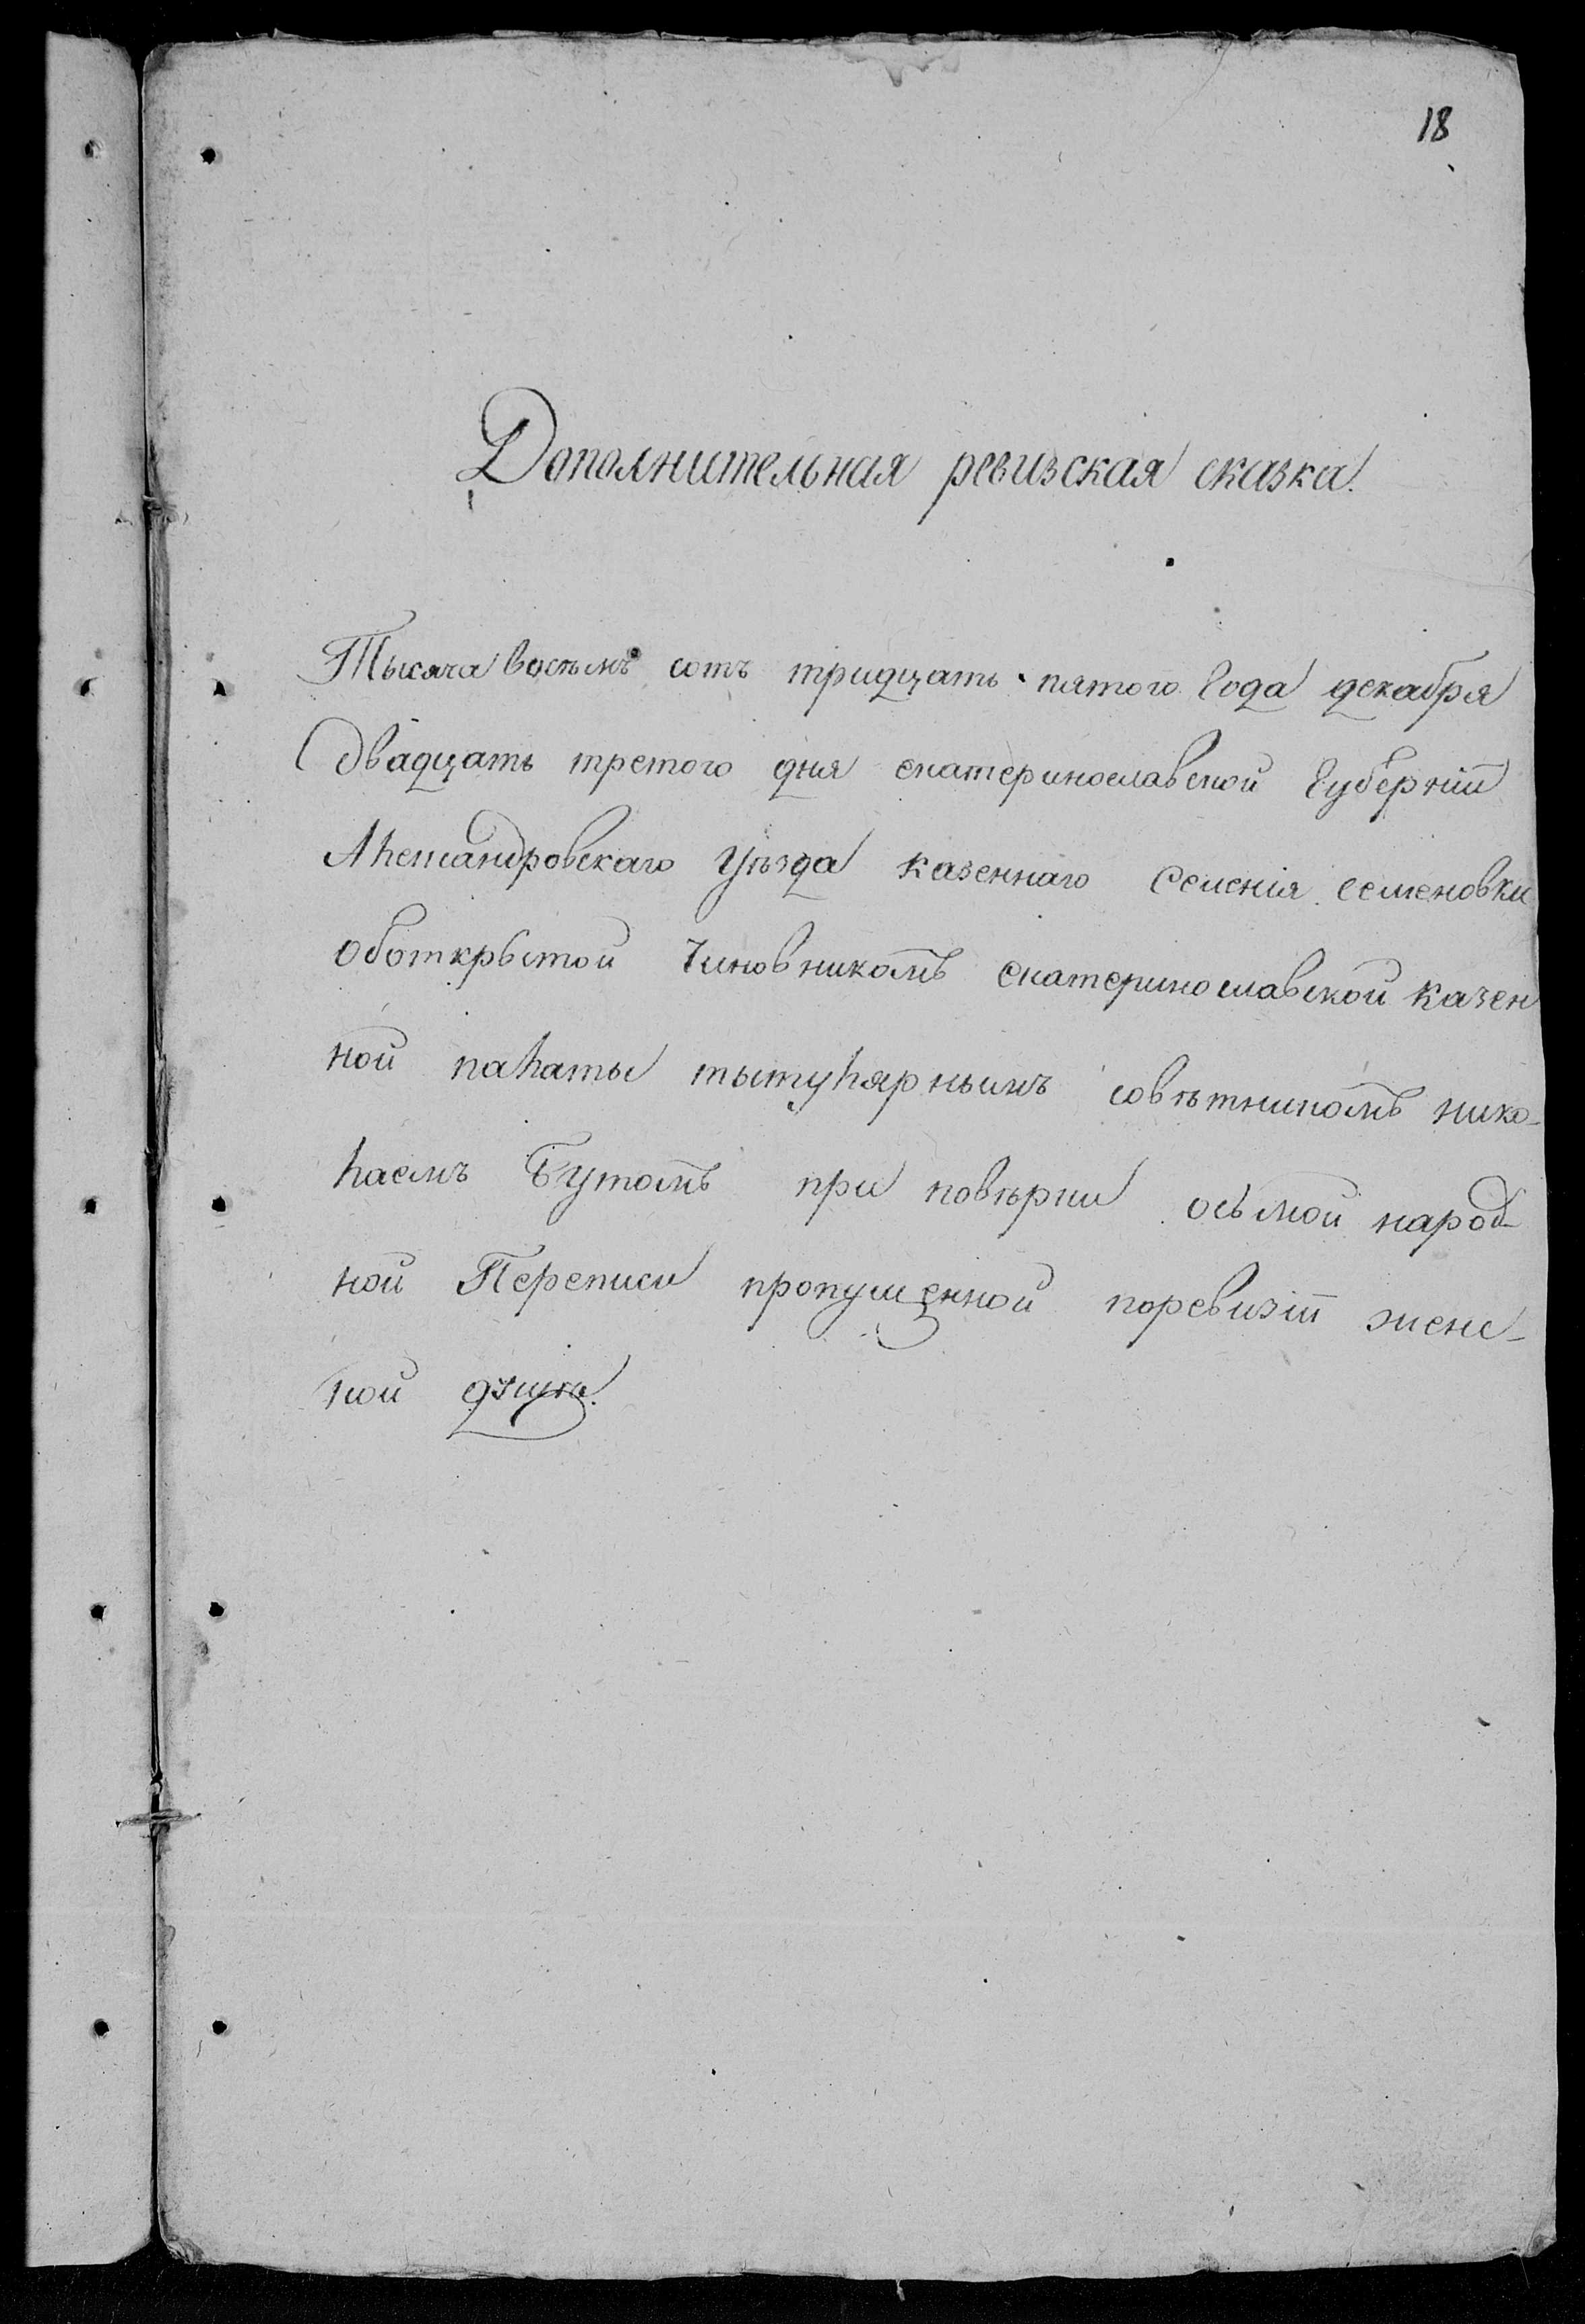 18
Дополнительная ревизская сказка.
Тысяча восѣмъ сотъ тридцать пятого Года декабря
двадцать третого дня екатеринославской Губерніи
Александровскаго Уѣзда казеннаго Селенія семеновки
оботкрытой Чиновникомъ екатеринославской казен
ной палаты тытулярнымъ совѣтникомъ нико-
лаемъ Бутомъ при повѣрки осьмой народ-
ной Переписи пропущенной поревизіи женс-
кой душѣ.